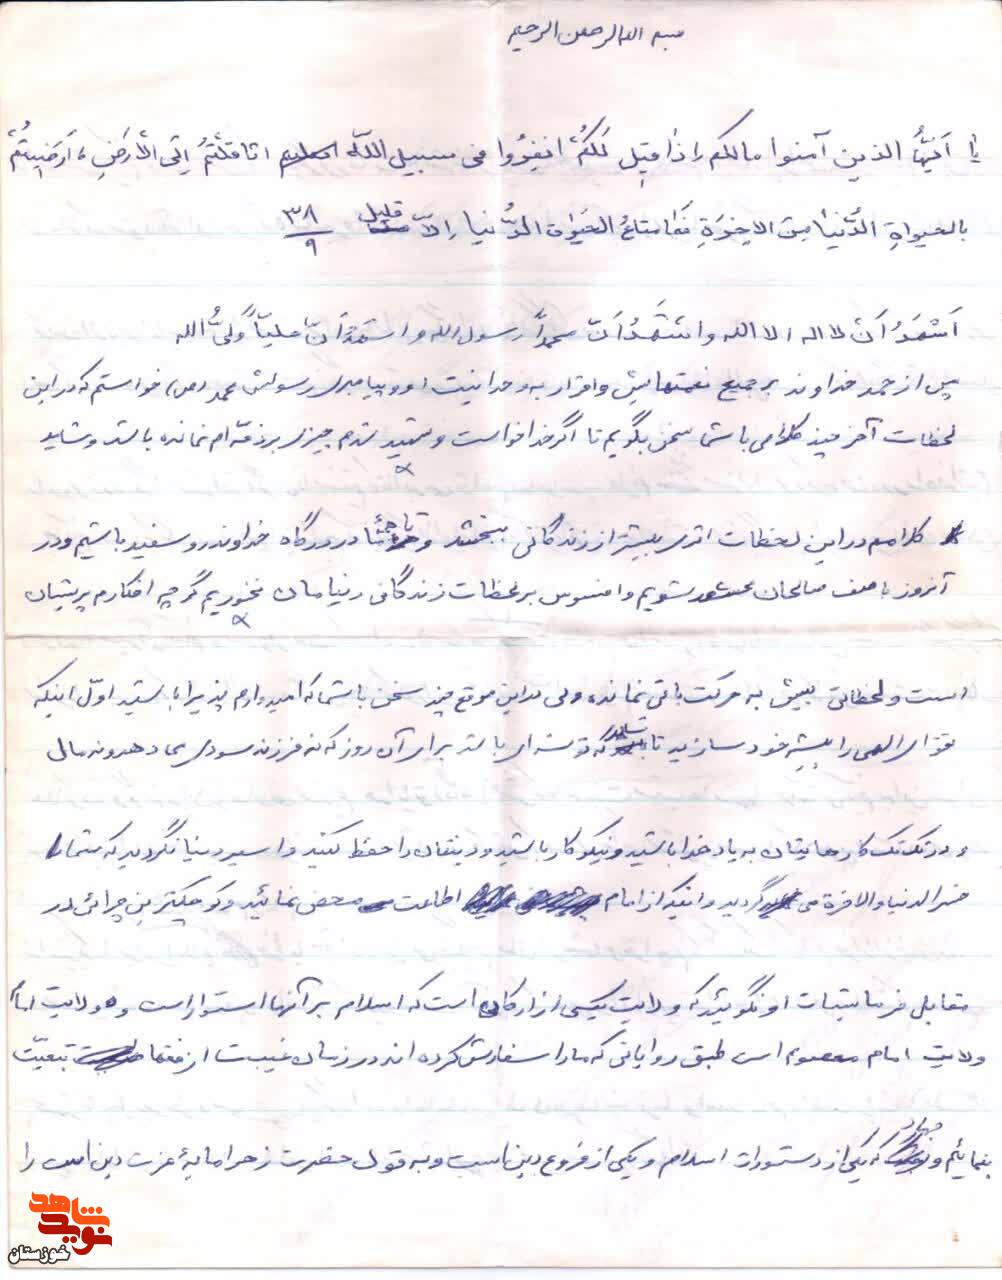 بسم الله الرحمن الرحیم
یا اَیُّهَا الذین آمنوا مالکم اِذا قیل لَکُمُ انفِرُوا فی سبیل اللّه اثاقَلْتُمْ اِلَی الْاَرضِ ءَ اَرَضیتُمْ
بالحیواةِ الدُّنیا مِنَ الاخِرَةِ فَما متاعُ الحَیَوٰة الدُّنیا اِلاّ قلیل ۳۸/۹
اَشْهَدُ اَنْ لا اله الا الله و اَشْهَدُ اَنَّ محمداً رسول الله و اَشهَدُ اَنَّ علیّاً ولیُّ الله
پس از حمد خداوند بر جمیع نعمتهایش و اقرار به وحدانیت او و پیامبری رسولش محمد (ص) خواستم که در این
لحظات آخر چند کلامی با شما سخن بگویم تا اگر خدا خواست و شهید شدم چیزی بر ذمّه ام نمانده باشد و شاید
کلامم در این لحظات اثری بیشتر از زندگانی ببخشد و تا در درگاه خداوند رو سفید باشیم و در
آنروز با صف صالحان محشور شویم و افسوس بر لحظات زندگانی دنیامان نخوریم گرچه افکارم پریشان
است و لحظاتی بیش به حرکت باقی نمانده ولی در این موقع چند سخن با شما که امیدوارم پذیرا باشید اوّل اینکه
تقوای الهی را پیشه خود سازید تا شاید که توشه ای باشد برای آن روز که نه فرزند سودی می دهد و نه مال
و در تک تک کارهایتان به یاد خدا باشید و نیکوکار باشید و دینتان را حفظ کنید و اسیر دنیا نگردید که شما
خسر الدنیا و الاخرة می گردید و اینکه از امام اطاعت محض نمائید و کوچکترین چرائی در
مقابل فرمایشات او نگوئید که ولایت یکی از ارکان است که اسلام بر آنها استوار است و ولایت امام
ولایت امام معصوم است طبق روایاتی که ما را سفارش کرده اند در زمان غیبت از فقها تبعیّت
بنمائیم و جهاد که یکی از دستورات اسلام و یکی از فروع دین است و به قول حضرت زهرا مایۀ عزت دین است را
نوید شاهد
خوزستان